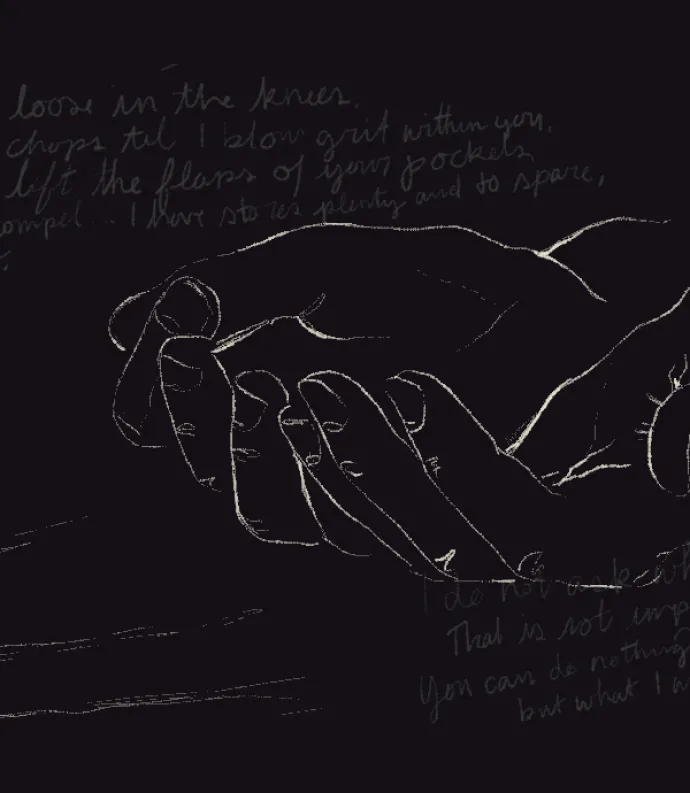 loose in the knees.
chops til I blow grit within you.
left the flaps of your pockets
ompel... I have stores plenty and to spare,
I do not ask wh
That is not imp
You can do nothing
but what I w